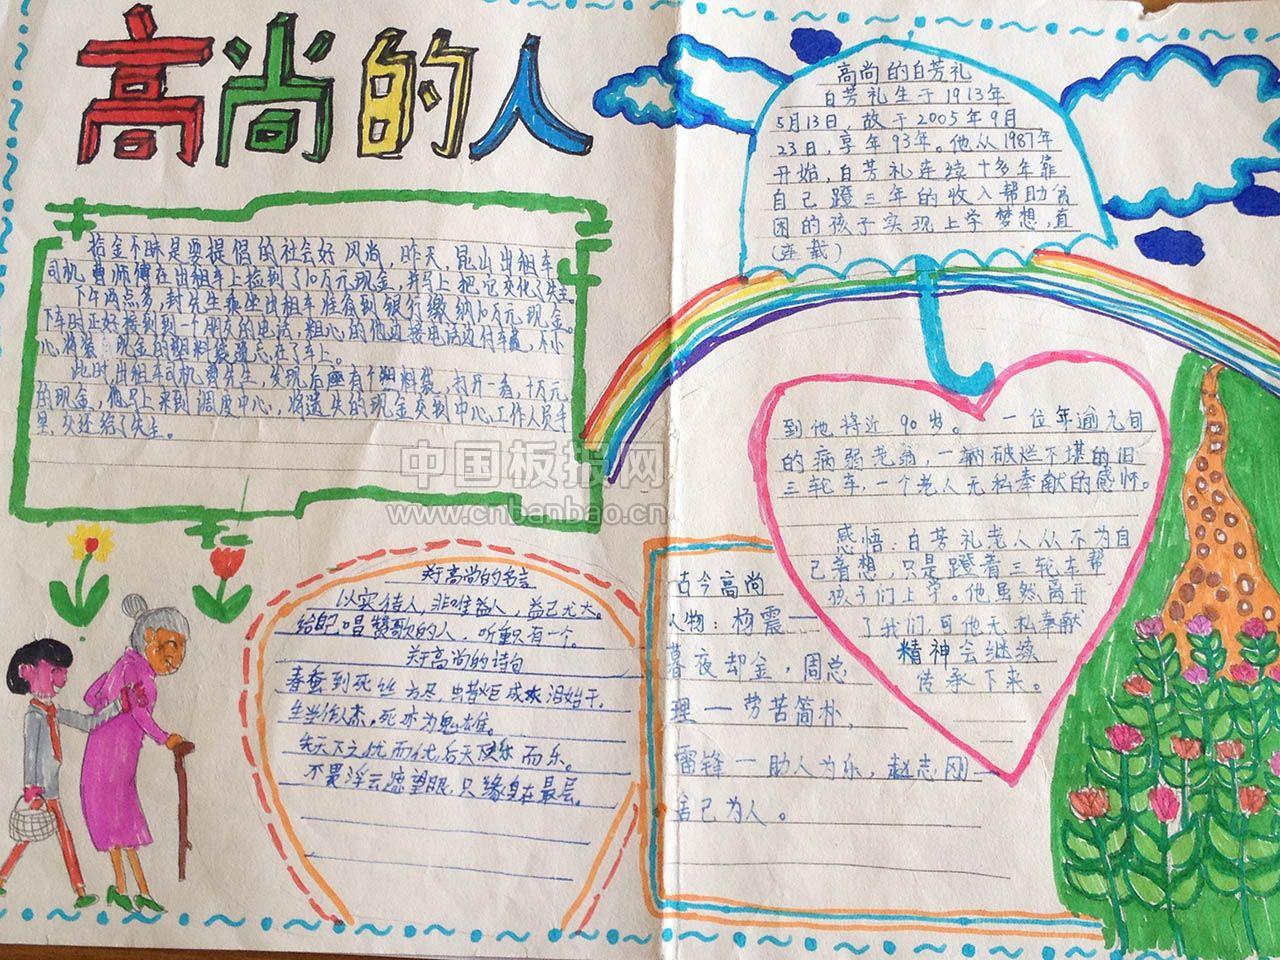 高尚的人
拾金不昧是要提倡的社会好风尚，昨天，昆山出租车
司机曹师傅在出租车上捡到了10万元现金，并马上把它交还了失主。
下午两点多，封先生乘坐出租车准备到银行缴纳10万元现金。
下车时正好接到一个朋友的电话，粗心的他边接电话边付车费，不小
心将装 现金的塑料袋遗忘在了车上。
此时出租车司机曹先生，发现后座有个塑料袋，打开一看，十万元
的现金，他马上来到调度中心，将遗失的现金交到中心工作人员手
里，交还给了失主。
高尚的白芳礼
白芳礼生于1913年
5月13日，故于2005年9月
23日，享年93年。他从1987年
开始，白芳礼连续十多年靠
自己蹬三年的收入帮助贫
困的孩子实现上学梦想，直
(连载)
到他将近90岁。 一位年逾九旬
的病弱老翁，一辆破烂不堪的旧
三轮车，一个老人无私奉献的感怀。
感悟：白芳礼老人从不为自
己着想，只是蹬着三轮车帮
孩子们上学。他虽然离开
了我们，可他无私奉献
精神会继续
传承下来。
关于高尚的名言
以实待人，非唯益人，益己尤大。
给自己唱赞歌的人，听众只有一个。
关于高尚的诗句
春蚕到死丝方尽，蜡炬成灰泪始干。
生当作人杰，死亦为鬼雄。
先天下之忧而忧，后天下之乐而乐。
不畏浮云遮望眼，只缘身在最层。
古今高尚
人物：杨震一
暮夜却金，周总
理一劳苦简朴，
雷锋一助人为乐，赵志刚一
舍己为人。
中国板报网
www.cnbanbao.cn